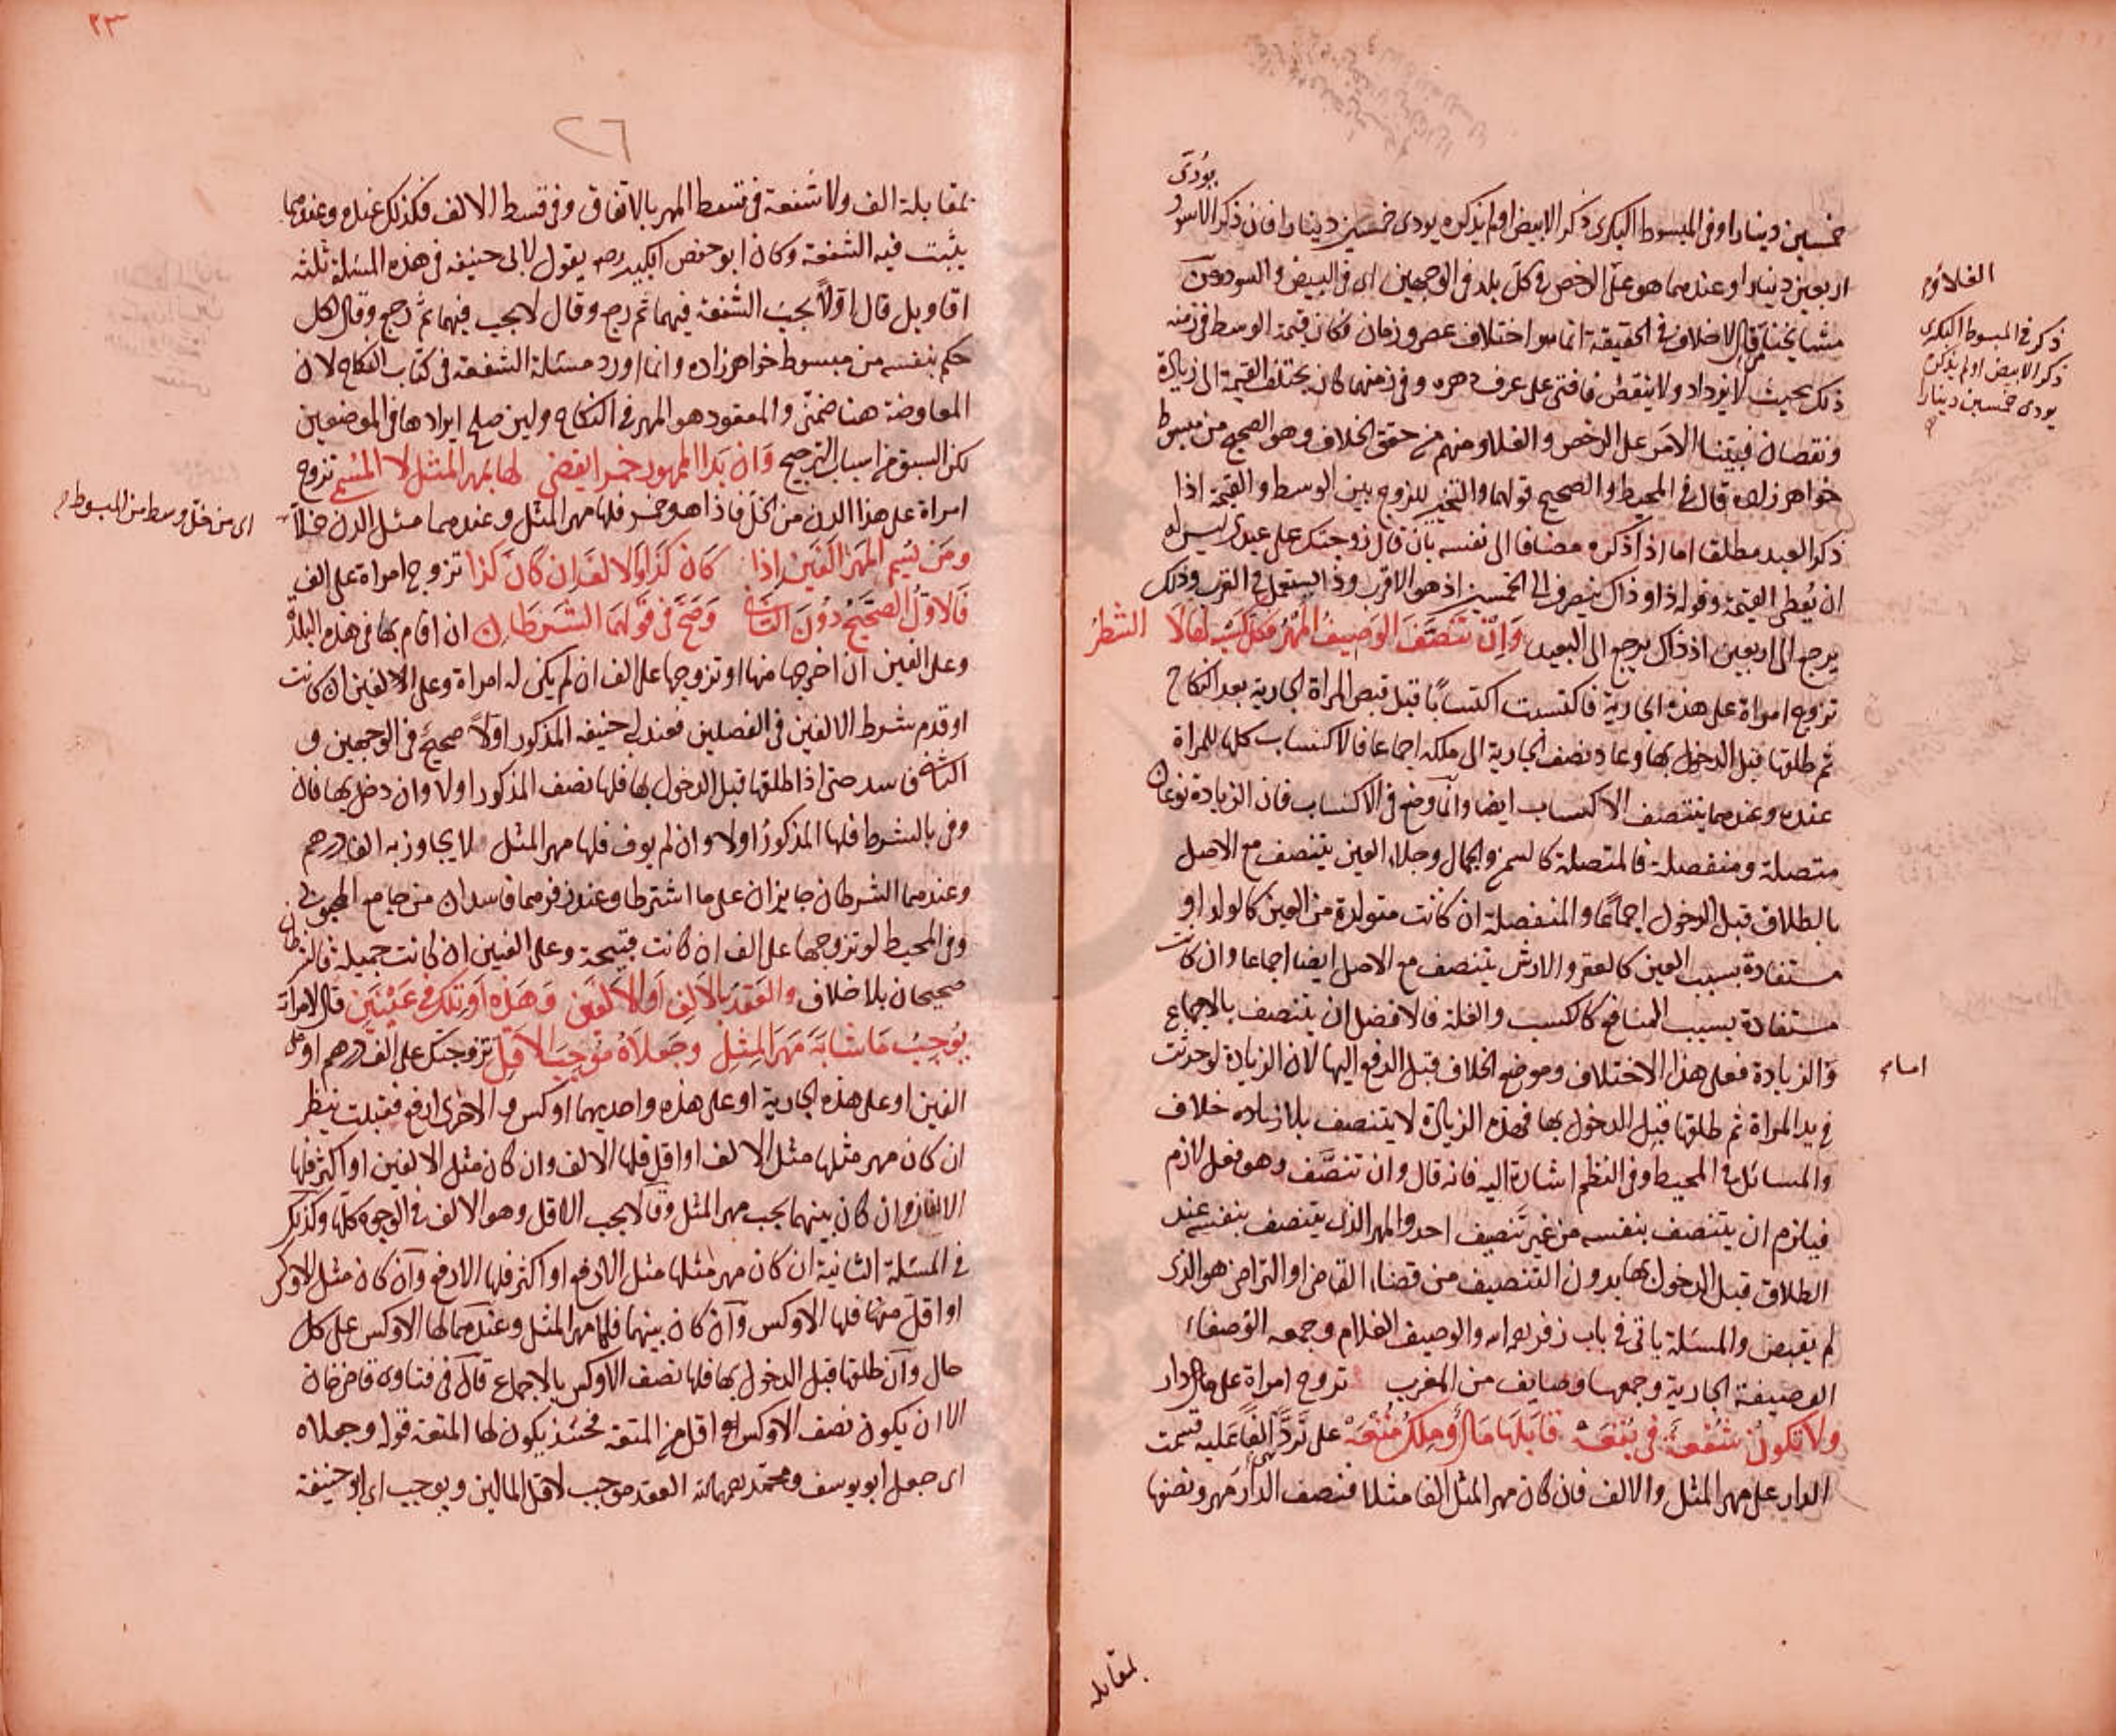 يؤدى
خمسين دينارا وفى المبسوط البكرى ذكر الابيض او لم يذكره يودى خمسين دينارا فان ذكر الاسود
اربعين دينارا وعندهما هو على الرخص فى كل بلد فى الوجهين اى فى البيض و السود وعن
مشايخنا قال الاختلاف فى الحقيقة انما هو اختلاف عصر وزمان فكان قيمة الوسط فى زمنه
ذلك بحيث لا يزداد ولا ينقص فافتى على عرف دهره وفى زمنهما كان يختلف القيمة الى زيادة
ونقصان فبيّنا الامر على الرخص و الغلاء ومنهم من حقق الخلاف وهو الصحيح من مبسوط
خواهرزاده قال فى المحيط و الصحيح قولهما والتخيير للزوج بين الوسط و القيمة اذا
ذكر العبد مطلقا اما اذا ذكره مضافا الى نفسه بان قال زوجتك على عبدى ليس له
ان يعطى القيمة وقوله ذا و ذاك ينصرف الى الخمسين اذ هو الاقرب وذا يستعمل فى القرب وذلك
يرجع الى اربعين اذ ذاك يرجع الى البعيد وان تنصف الوصيف المهر فكل كسبه لها لا الشطر
تزوج امراة على هذه الجارية فاكتسبت اكتسابا قبل قبض المراة الجارية بعد النكاح
ثم طلقها قبل الدخول بها وعاد نصف الجارية الى ملكه اجماعا فالاكتساب كلها للمراة
عنده وعندهما يتنصف الاكتساب ايضا وانما وضع فى الاكتساب فان الزيادة نوعان
متصلة ومنفصلة فالمتصلة كالسمن والجمال وجلاء العين يتنصف مع الاصل
بالطلاق قبل الدخول اجماعا والمنفصلة ان كانت متولدة من العين كالولد او
مستفادة بسبب العين كالعقر والارش يتنصف مع الاصل ايضا اجماعا وان كانت
مستفادة بسبب المنافع كالكسب والغلة فالافضل ان يتنصف بالاجماع
والزيادة فعلى هذا الاختلاف وموضع الخلاف قبل الدفع اليها لان الزيادة لو حدثت
فى يد المراة ثم طلقها قبل الدخول بها فهذه الزيادة لا يتنصف بلا خلاف
والمسائل فى المحيط وفى النظم اشارة اليه فانه قال وان تنصّف وهو فعل لازم
فيلزم ان يتنصف بنفسه من غير تنصيف احد والمهر الذى يتنصف بنفسه عند
الطلاق قبل الدخول بها بدون التنصيف من قضاء القاضى او التراضى هو الذى
لم يقبض والمسئلة ياتى فى باب زفر رحمه الله والوصيف الغلام وجمعه الوصفاء
الوصيفة الجارية وجمعها وصايف من المغرب تزوج امراة على دار
ولا تكون شفعة فى بقعة قابلها مال وملك متعة على ترد الفا عليه قسمت
الدار على مهر المثل والالف فان كان مهر المثل الفا مثلا فنصف الدار مهر ونصفها
بمقابله
الغلاؤم
ذكر فى المبسوط البكرى
ذكر الابيض او لم يذكره
يودى خمسين دينارا
٢٣
٢٦
بمقابلة الف ولا شفعة فى قسط المهر بالاتفاق وفى قسط الالف فكذلك عنده وعندهما
يثبت فيه الشفعة وكان ابو حفص الكبير رحه يقول لابى حنيفه فى هذه المسئلة ثلثه
اقاويل قال اولاً يجب الشفعة فيهما ثم رجع وقال لا يجب فيهما ثم رجع وقال لكل
حكم بنفسه من مبسوط خواهرزاده وانما اورد مسئلة الشفعة فى كتاب النكاح لان
المعاوضة هنا ضمنى والمعقود هو المهر فى النكاح ولئن صلح ايرادها فى الموضعين
لكن السبق من اسباب الترجيح وان بدا الممهور خمرا يقضى لها بمهر المثل لا المسمى تزوج
امراة على هذا الدن من الخل فاذا هو خمر فلها مهر المثل وعندهما مثل الدن خلا
اى من خل وسط من المبسوط م
ومن يسم المهر الفين اذا كان كذا والالف ان كان كذا تزوج امراة على الف
فالاول الصحيح دون الثانى وصح فى قولهما الشرطان ان اقام بها فى هذه البلدة
وعلى الفين ان اخرجها منها او تزوجها على الف ان لم يكن له امراة وعلى الالفين ان كانت
او قدم شرط الالفين فى الفصلين فعند ابى حنيفه المذكور اولاً صحيح فى الوجهين و
الثانى فاسد حتى اذا طلقها قبل الدخول بها فلها نصف المذكور اولا وان دخل بها فان
وفى بالشرط فلها المذكور اولا وان لم يوف فلها مهر المثل لا يجاوز به الف درهم
وعندهما الشرطان جايزان على ما اشترطا وعند زفر هما فاسدان من جامع المحبوبى
وفى المحيط لو تزوجها على الف ان كانت قبيحة وعلى الفين ان كانت جميلة فالشرطان
صحيحان بلا خلاف والعقد بالالف او الالفين وهذه او تلك فى عينين قال لامراة
يوجب ما شابه مهر المثل وجعلاه موجب الاقل تزوجتك على الف درهم او على
الفين او على هذه الجارية او على هذه واحديهما اوكس و الاخرى ارفع فقبلت ينظر
ان كان مهر مثلها مثل الالف او اقل فلها الالف وان كان مثل الالفين او اكثر فلها
الالفان وان كان بينهما يجب مهر المثل وقالا يجب الاقل وهو الالف فى الوجوه كلها وكذلك
فى المسئلة الثانية ان كان مهر مثلها مثل الارفع او اكثر فلها الارفع وان كان مثل الاوكس
او اقل منها فلها الاوكس وان كان بينهما فلها مهر المثل وعندهما لها الاوكس على كل
حال وان طلقها قبل الدخول بها فلها نصف الاوكس بالاجماع قال فى فتاوى قاضى خان
الا ان يكون نصف الاوكس اقل من المتعة فحينئذ يكون لها المتعة قوله وجعلاه
اى جعل ابو يوسف ومحمد رحمهما الله العقد موجب لاقل المالين ويوجب اى ابو حنيفة